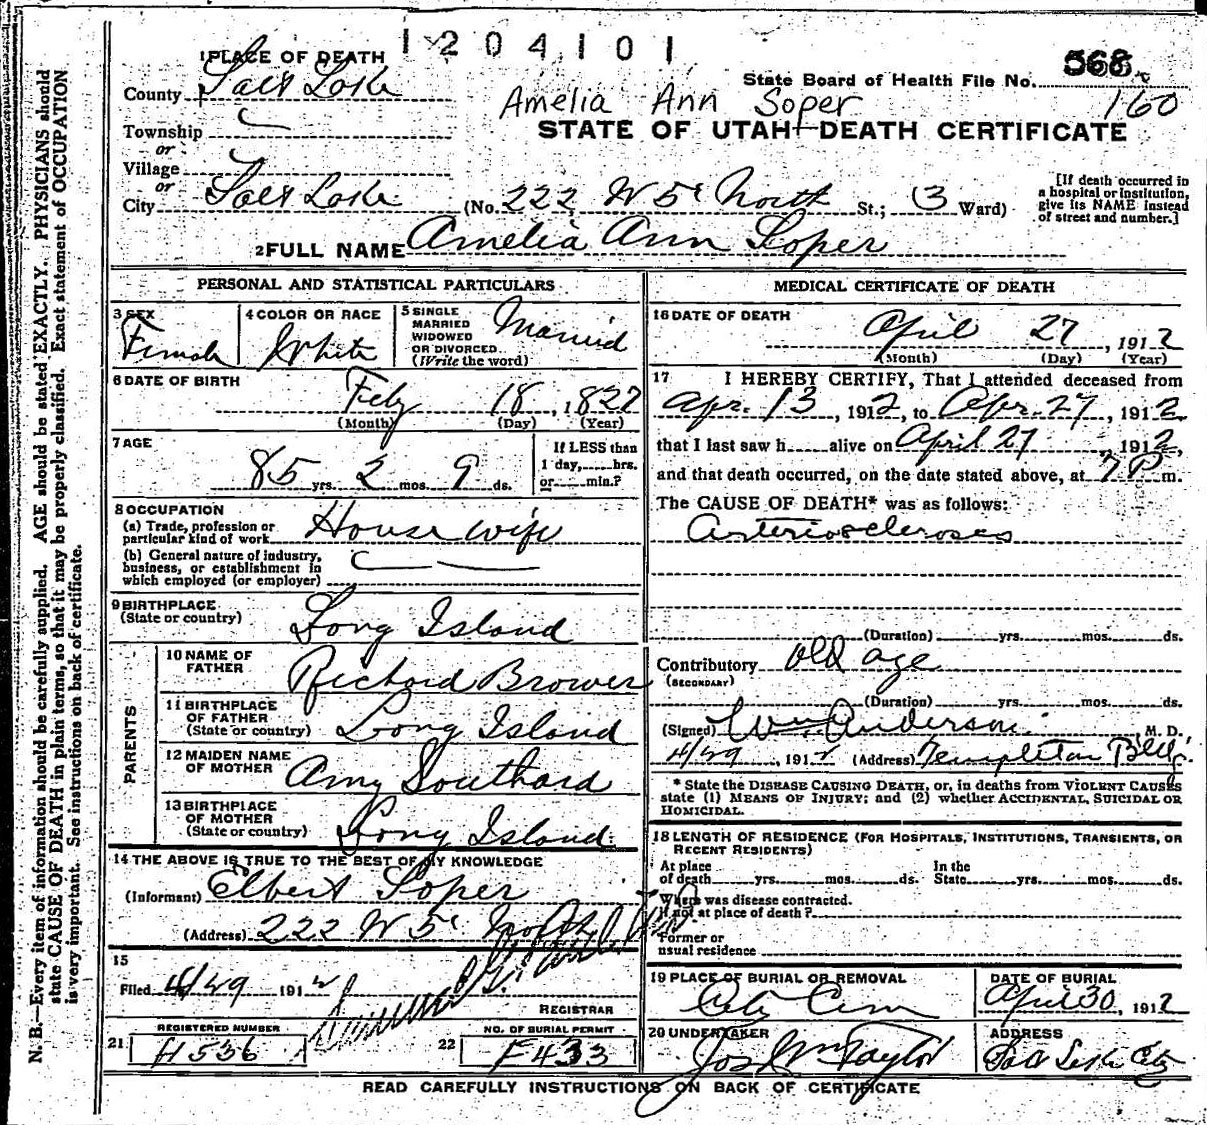 1204101
1 PLACE OF DEATH
568
State Board of Health File No.
160
County Salt Lake
Amelia Ann Soper
STATE OF UTAH—DEATH CERTIFICATE
Township
or
Village
or
City Salt Lake (No. 222 W 5th North St.; 3 Ward)
[If death occurred in
a hospital or institution,
give its NAME instead
of street and number.]
2 FULL NAME Amelia Ann Soper
PERSONAL AND STATISTICAL PARTICULARS
3 SEX
Female
4 COLOR OR RACE
White
5 SINGLE
MARRIED
WIDOWED
OR DIVORCED
(Write the word)
Married
6 DATE OF BIRTH
Feby 18, 1827
(Month) (Day) (Year)
7 AGE
85 yrs. 2 mos. 9 ds.
If LESS than
1 day, hrs.
or min.?
8 OCCUPATION
(a) Trade, profession or
particular kind of work House wife
(b) General nature of industry,
business, or establishment in
which employed (or employer)
9 BIRTHPLACE
(State or country) Long Island
PARENTS
10 NAME OF
FATHER Richard Brower
11 BIRTHPLACE
OF FATHER
(State or country) Long Island
12 MAIDEN NAME
OF MOTHER Amy Southard
13 BIRTHPLACE
OF MOTHER
(State or country) Long Island
14 THE ABOVE IS TRUE TO THE BEST OF MY KNOWLEDGE
(Informant) Elbert Soper
(Address) 222 W 5th North
15
Filed 4/29 1912
REGISTRAR
REGISTERED NUMBER
21 H536
NO. OF BURIAL PERMIT
22 F433
MEDICAL CERTIFICATE OF DEATH
16 DATE OF DEATH
April 27, 1912
(Month) (Day) (Year)
17 I HEREBY CERTIFY, That I attended deceased from
Apr. 13, 1912, to Apr. 27, 1912
that I last saw h alive on April 27 1912,
and that death occurred, on the date stated above, at 7 P m.
The CAUSE OF DEATH* was as follows:
Arteriosclerosis
(Duration) yrs. mos. ds.
Contributory Old age
(SECONDARY)
(Duration) yrs. mos. ds.
(Signed) Wm Anderson, M. D.,
4/29, 1912 (Address) Templeton Bldg.
* State the DISEASE CAUSING DEATH, or, in deaths from VIOLENT CAUSES
state (1) MEANS OF INJURY; and (2) whether ACCIDENTAL, SUICIDAL OR
HOMICIDAL.
18 LENGTH OF RESIDENCE (FOR HOSPITALS, INSTITUTIONS, TRANSIENTS, OR
RECENT RESIDENTS)
At place
of death yrs. mos. ds.
In the
State yrs. mos. ds.
Where was disease contracted.
If not at place of death?
Former or
usual residence
19 PLACE OF BURIAL OR REMOVAL
City Cem
DATE OF BURIAL
April 30, 1912
20 UNDERTAKER
Jos Wm Taylor
ADDRESS
Salt Lake City
READ CAREFULLY INSTRUCTIONS ON BACK OF CERTIFICATE
N. B.—Every item of information should be carefully supplied. AGE should be stated EXACTLY. PHYSICIANS should
state CAUSE OF DEATH in plain terms, so that it may be properly classified. Exact statement of OCCUPATION
is very important. See instructions on back of certificate.